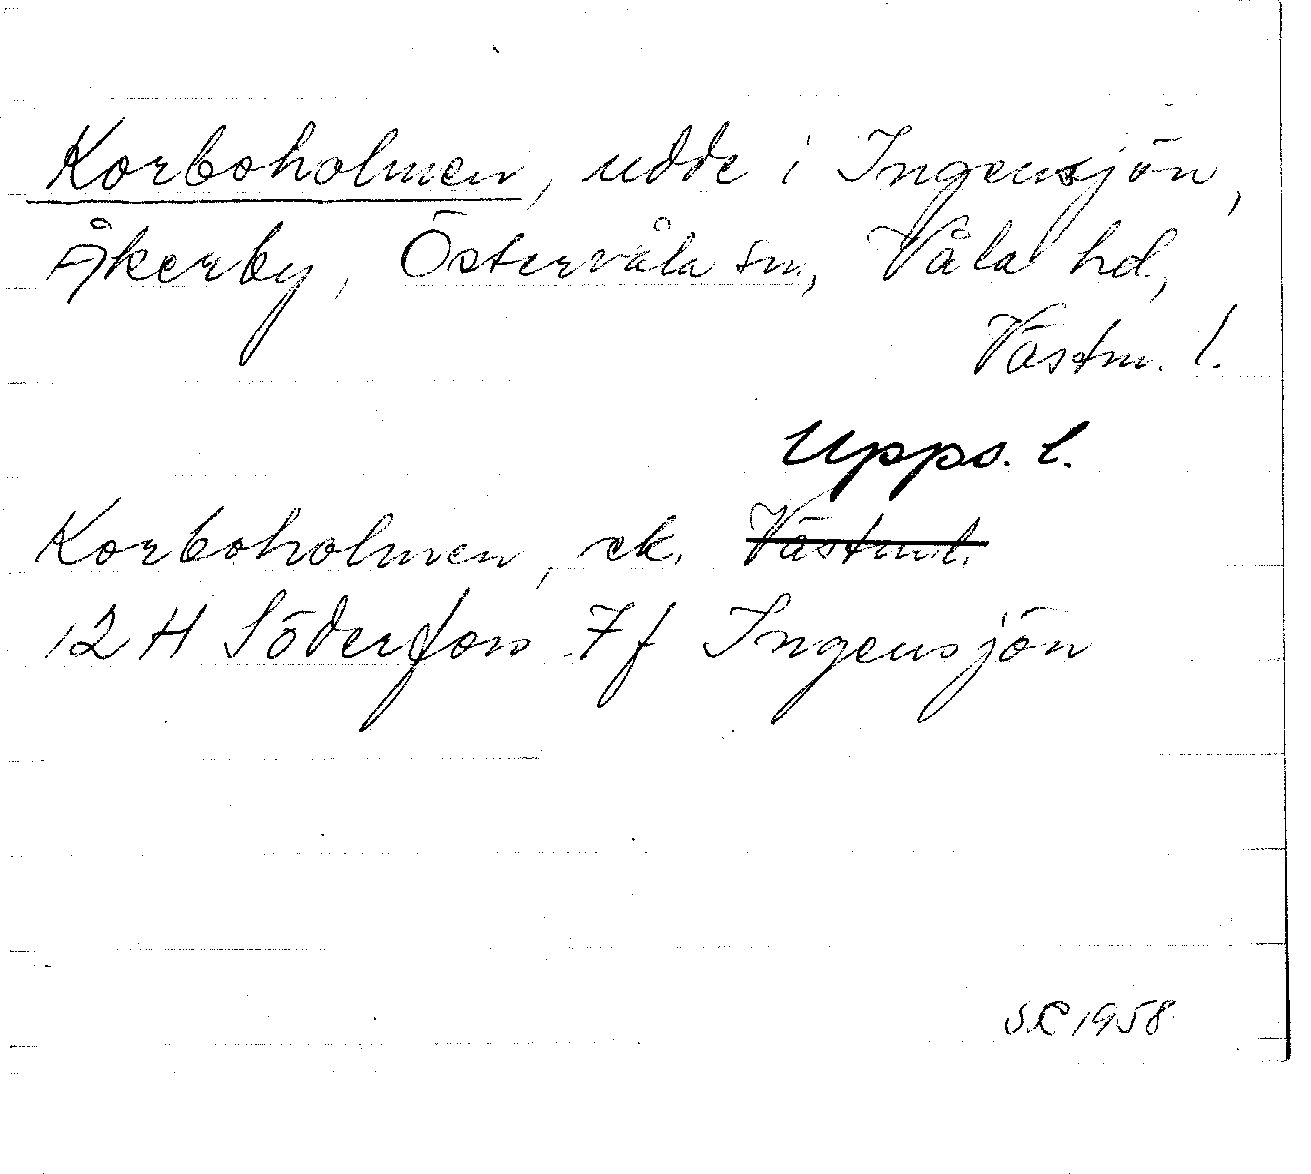 Korboholmen, udde i Ingensjön,
Åkerby, Östervåla sn, Våla hd,
Västm. l.
Upps. l.
Korboholmen, ek. Västm l.
12 H Söderfors 7 f Ingensjön
1958